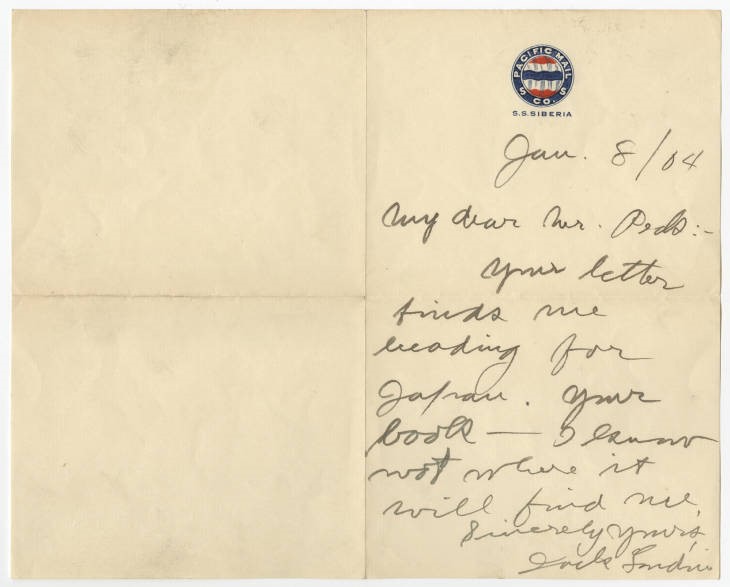 PACIFIC MAIL
S S
CO.
S.S.SIBERIA
Jan. 8/04
My dear Mr. Peck:-
Your letter
finds me
heading for
Japan. Your
book — I know
not where it
will find me.
Sincerely yours,
Jack London